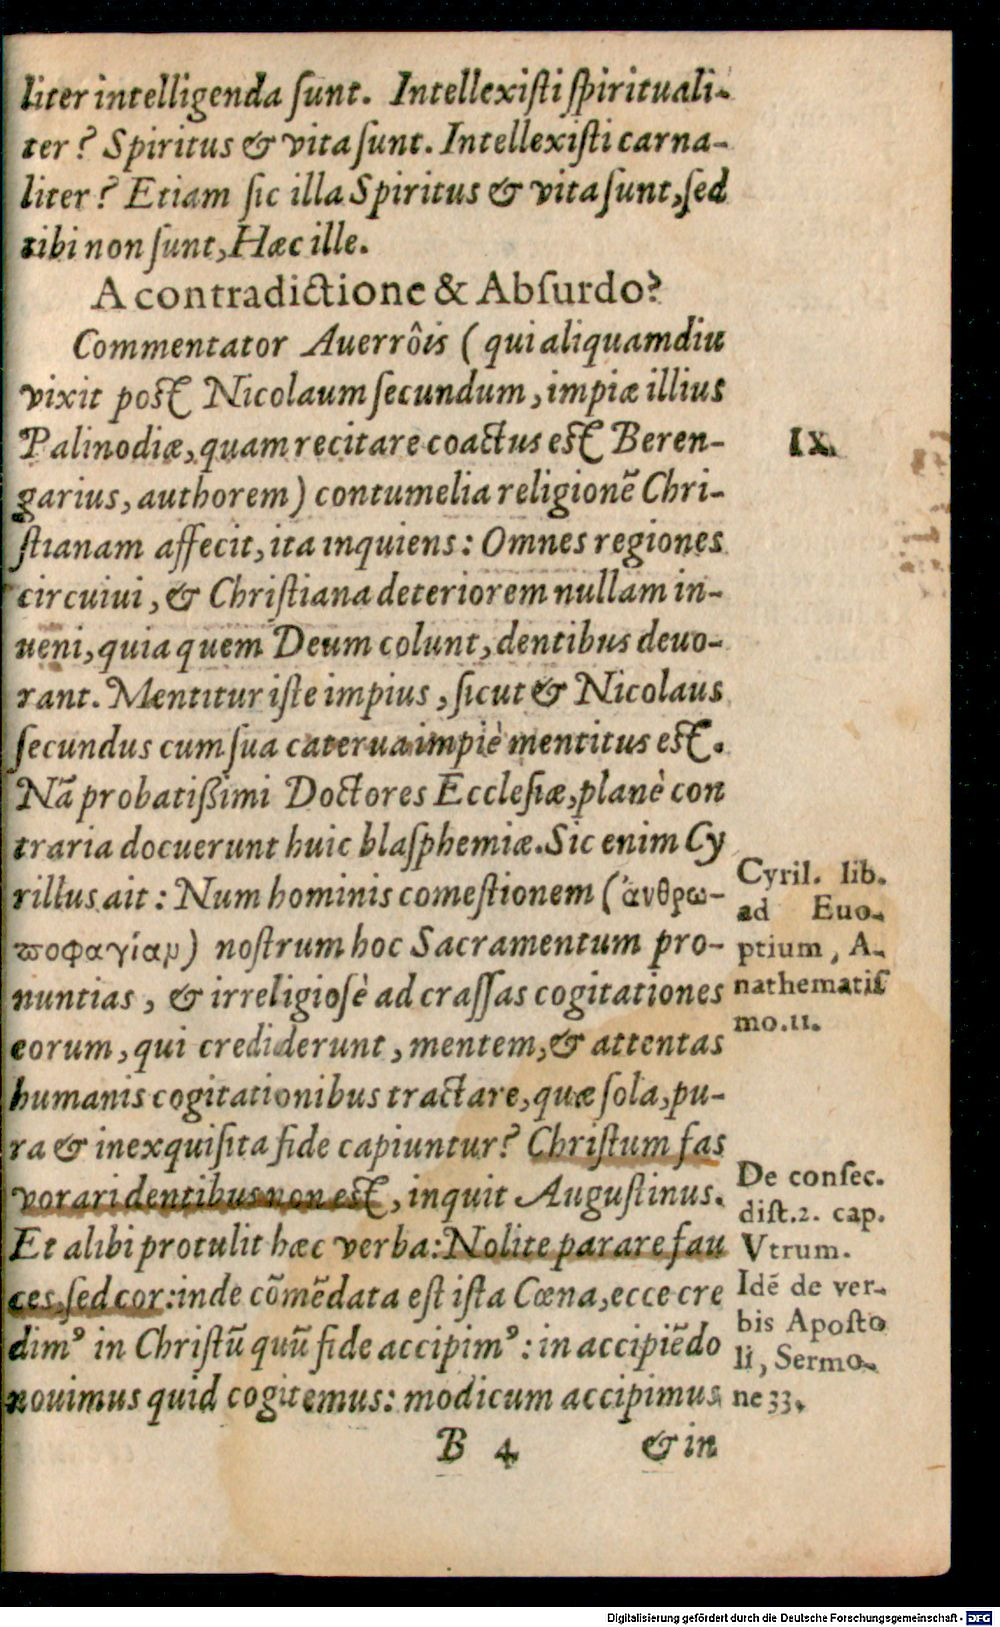 liter intelligenda ſunt. Intellexiſti ſpirituali-
ter? Spiritus & vita ſunt. Intellexiſti carna-
liter? Etiam ſic illa Spiritus & vita ſunt, ſed
tibi non ſunt, Hæc ille.
A contradictione & Abſurdo?
Commentator Auerrôis (qui aliquamdiu
vixit post Nicolaum ſecundum, impiæ illius
Palinodiæ, quam recitare coactus est Beren-
IX.
garius, authorem) contumelia religionē Chri-
ſtianam affecit, ita inquiens: Omnes regiones
circuiui, & Chriſtiana deteriorem nullam in-
ueni, quia quem Deum colunt, dentibus deuo-
rant. Mentitur iſte impius, ſicut & Nicolaus
ſecundus cum ſua caterua impiè mentitus est.
Nā probatißimi Doctores Eccleſiæ, planè con
traria docuerunt huic blaſphemiæ. Sic enim Cy
rillus ait: Num hominis comeſtionem (ἀνθρω-
ποφαγίαν) noſtrum hoc Sacramentum pro-
nuntias, & irreligioſè ad craſſas cogitationes
eorum, qui crediderunt, mentem, & attentas
humanis cogitationibus tractare, quæ ſola, pu-
ra & inexquiſita fide capiuntur? Chriſtum fas
vorari dentibus non est, inquit Auguſtinus.
Et alibi protulit hæc verba: Nolite parare fau
ces, ſed cor: inde cōmēdata eſt iſta Cœna, ecce cre
dimꝰ in Chriſtū quū fide accipimꝰ: in accipiēdo
nouimus quid cogitemus: modicum accipimus
Cyril. lib.
ad Euo-
ptium, A-
nathematiſ
mo.11.
De conſec.
diſt.2. cap.
Vtrum.
Idē de ver-
bis Apoſto
li, Sermo-
ne 33.
B 4 & in
Digitalisierung gefördert durch die Deutsche Forschungsgemeinschaft - DFG